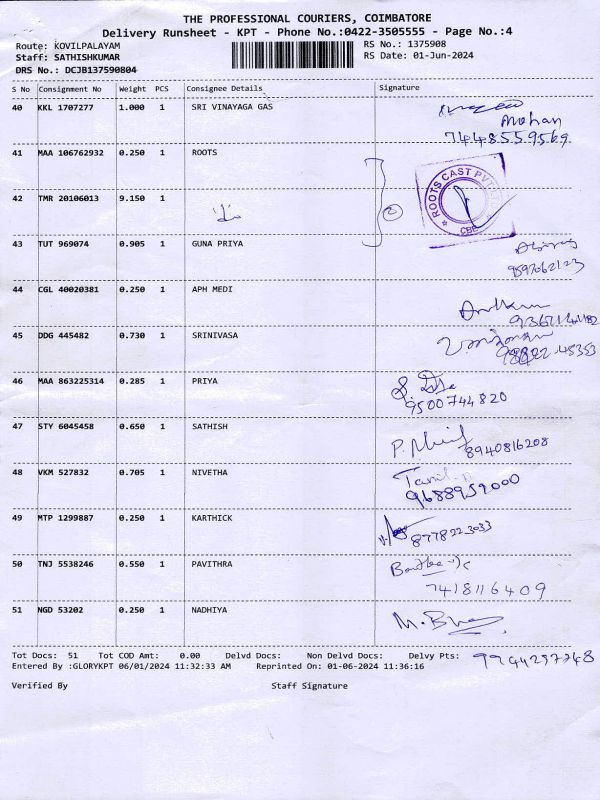 THE PROFESSIONAL COURIERS, COIMBATORE
Delivery Runsheet - KPT - Phone No.:0422-3505555 - Page No.:4
Route: KOVILPALAYAM RS No.: 1375908
Staff: SATHISHKUMAR RS Date: 01-Jun-2024
DRS No.: DCJB137590804
S No Consignment No Weight PCS Consignee Details Signature
40 KKL 1707277 1.000 1 SRI VINAYAGA GAS
Mohan
7448559569
41 MAA 106762932 0.250 1 ROOTS
ROOTS CAST PVT
CBE
42 TMR 20106013 9.150 1
2
43 TUT 969074 0.905 1 GUNA PRIYA
9597062123
44 CGL 40020381 0.250 1 APH MEDI
45 DDG 445482 0.730 1 SRINIVASA
46 MAA 863225314 0.285 1 PRIYA
9500744820
47 STY 6045458 0.650 1 SATHISH
8940816208
48 VKM 527832 0.705 1 NIVETHA
9688959000
49 MTP 1299887 0.250 1 KARTHICK
8778223033
50 TNJ 5538246 0.550 1 PAVITHRA
7418116409
51 NGD 53202 0.250 1 NADHIYA
Tot Docs: 51 Tot COD Amt: 0.00 Delvd Docs: Non Delvd Docs: Delvy Pts: 9944297248
Entered By :GLORYKPT 06/01/2024 11:32:33 AM Reprinted On: 01-06-2024 11:36:16
Verified By Staff Signature